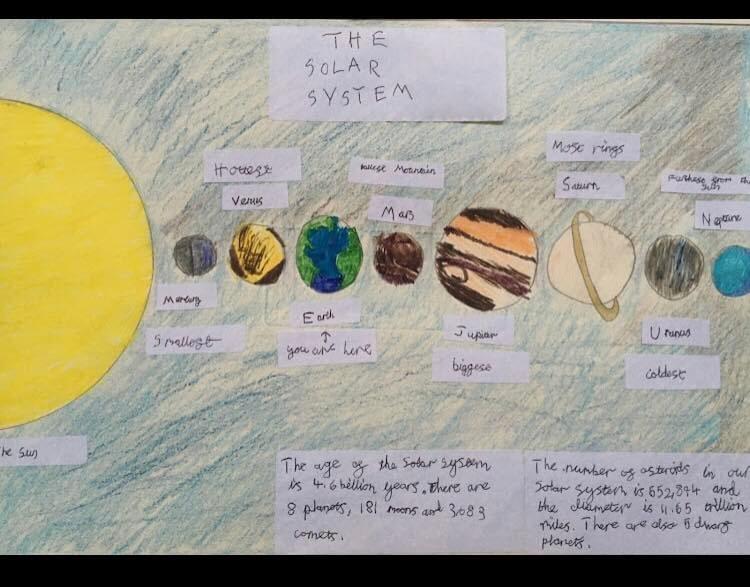 THE
SOLAR
SYSTEM
Hottest
Venus
tallest Mountain
Mars
Most rings
Saturn
Furthest from the
Sun
Neptune
Mercury
Smallest
Earth
↑
you are here
Jupiter
biggest
Uranus
coldest
The Sun
The age of the Solar System
is 4.6 billion years. There are
8 planets, 181 moons and 3,083
comets.
The number of asteroids in our
Solar system is 652,844 and
the diameter is 11.65 trillion
miles. There are also 5 dwarf
planets.